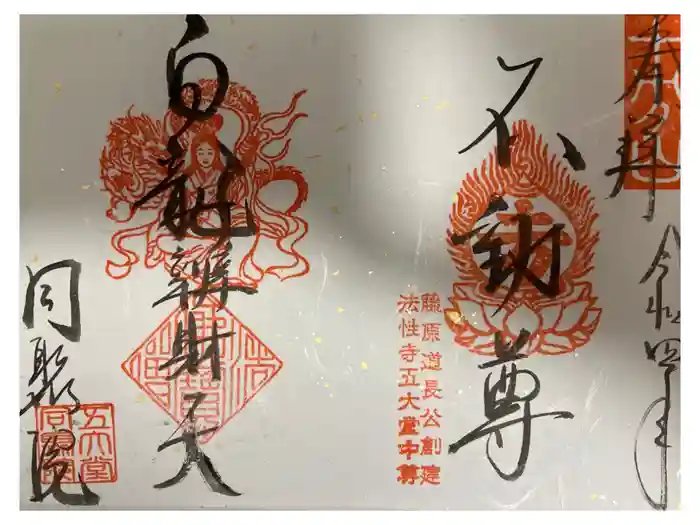 奉拝
令和四年
不動尊
藤原道長公創建
法性寺五大堂中尊
白龍辨財天
同聚院
五大堂
同聚院